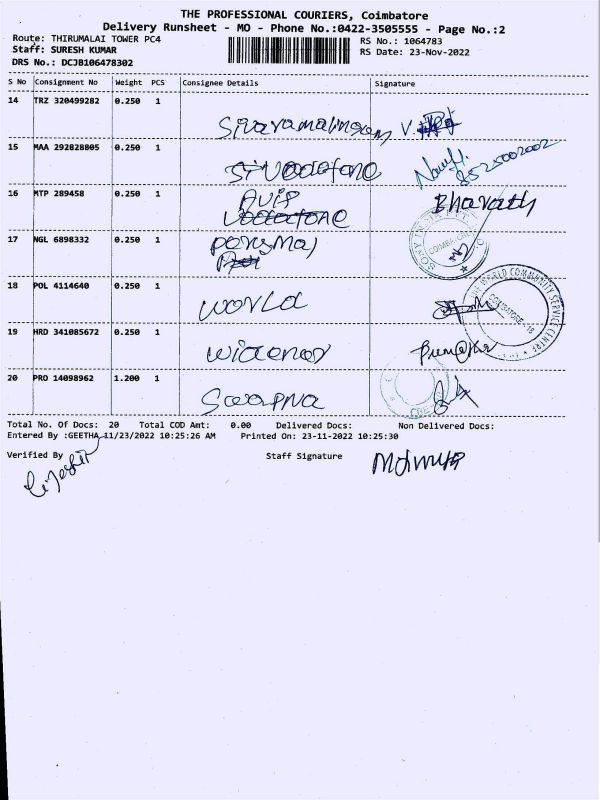 THE PROFESSIONAL COURIERS, Coimbatore
Delivery Runsheet - MO - Phone No.:0422-3505555 - Page No.:2
Route: THIRUMALAI TOWER PC4
RS No.: 1064783
Staff: SURESH KUMAR
RS Date: 23-Nov-2022
DRS No.: DCJB106478302
S No Consignment No Weight PCS Consignee Details Signature
14 TRZ 320499282 0.250 1
Sivaramalingam
15 MAA 292828805 0.250 1
8525002002
16 MTP 289458 0.250 1
Bharath
17 NGL 6898332 0.250 1
18 POL 4114640 0.250 1
World
THE WORLD COMMUNITY SERVICE CENTRE
19 HRD 341085672 0.250 1
20 PRO 14098962 1.200 1
Swapna
Total No. Of Docs: 20 Total COD Amt: 0.00 Delivered Docs: Non Delivered Docs:
Entered By :GEETHA 11/23/2022 10:25:26 AM Printed On: 23-11-2022 10:25:30
Verified By Staff Signature